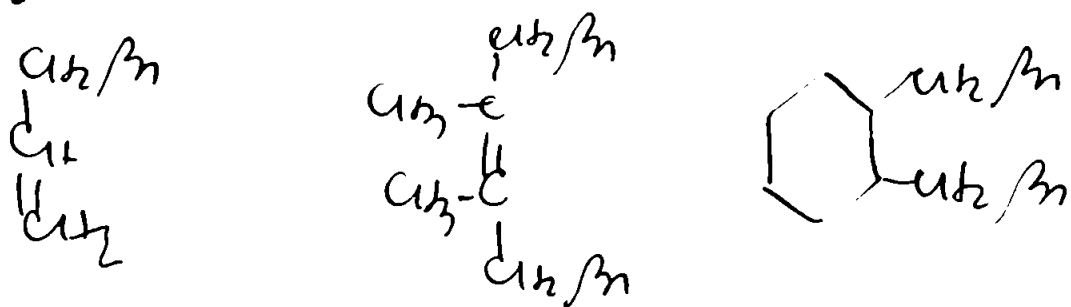 CH2Br
CH
CH2
CH2Br
CH3-C
CH3-C
CH2Br
CH2Br
CH2Br